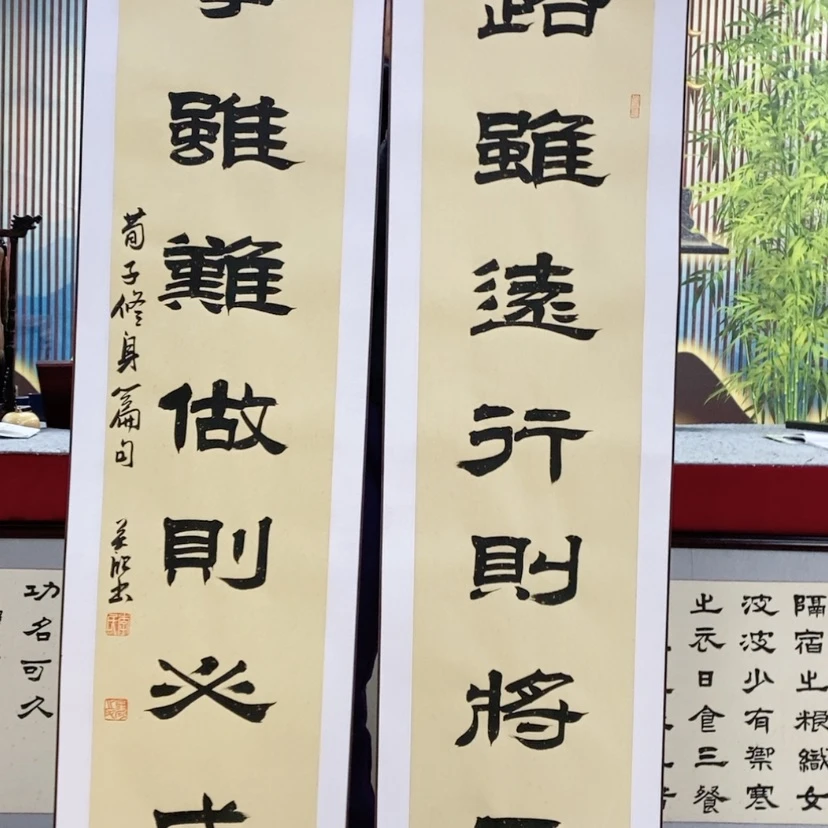 路雖遠行則將
事雖難做則必成
荀子修身篇句
隔宿之粮織女
波波少有禦寒
之衣日食三餐
功名可久